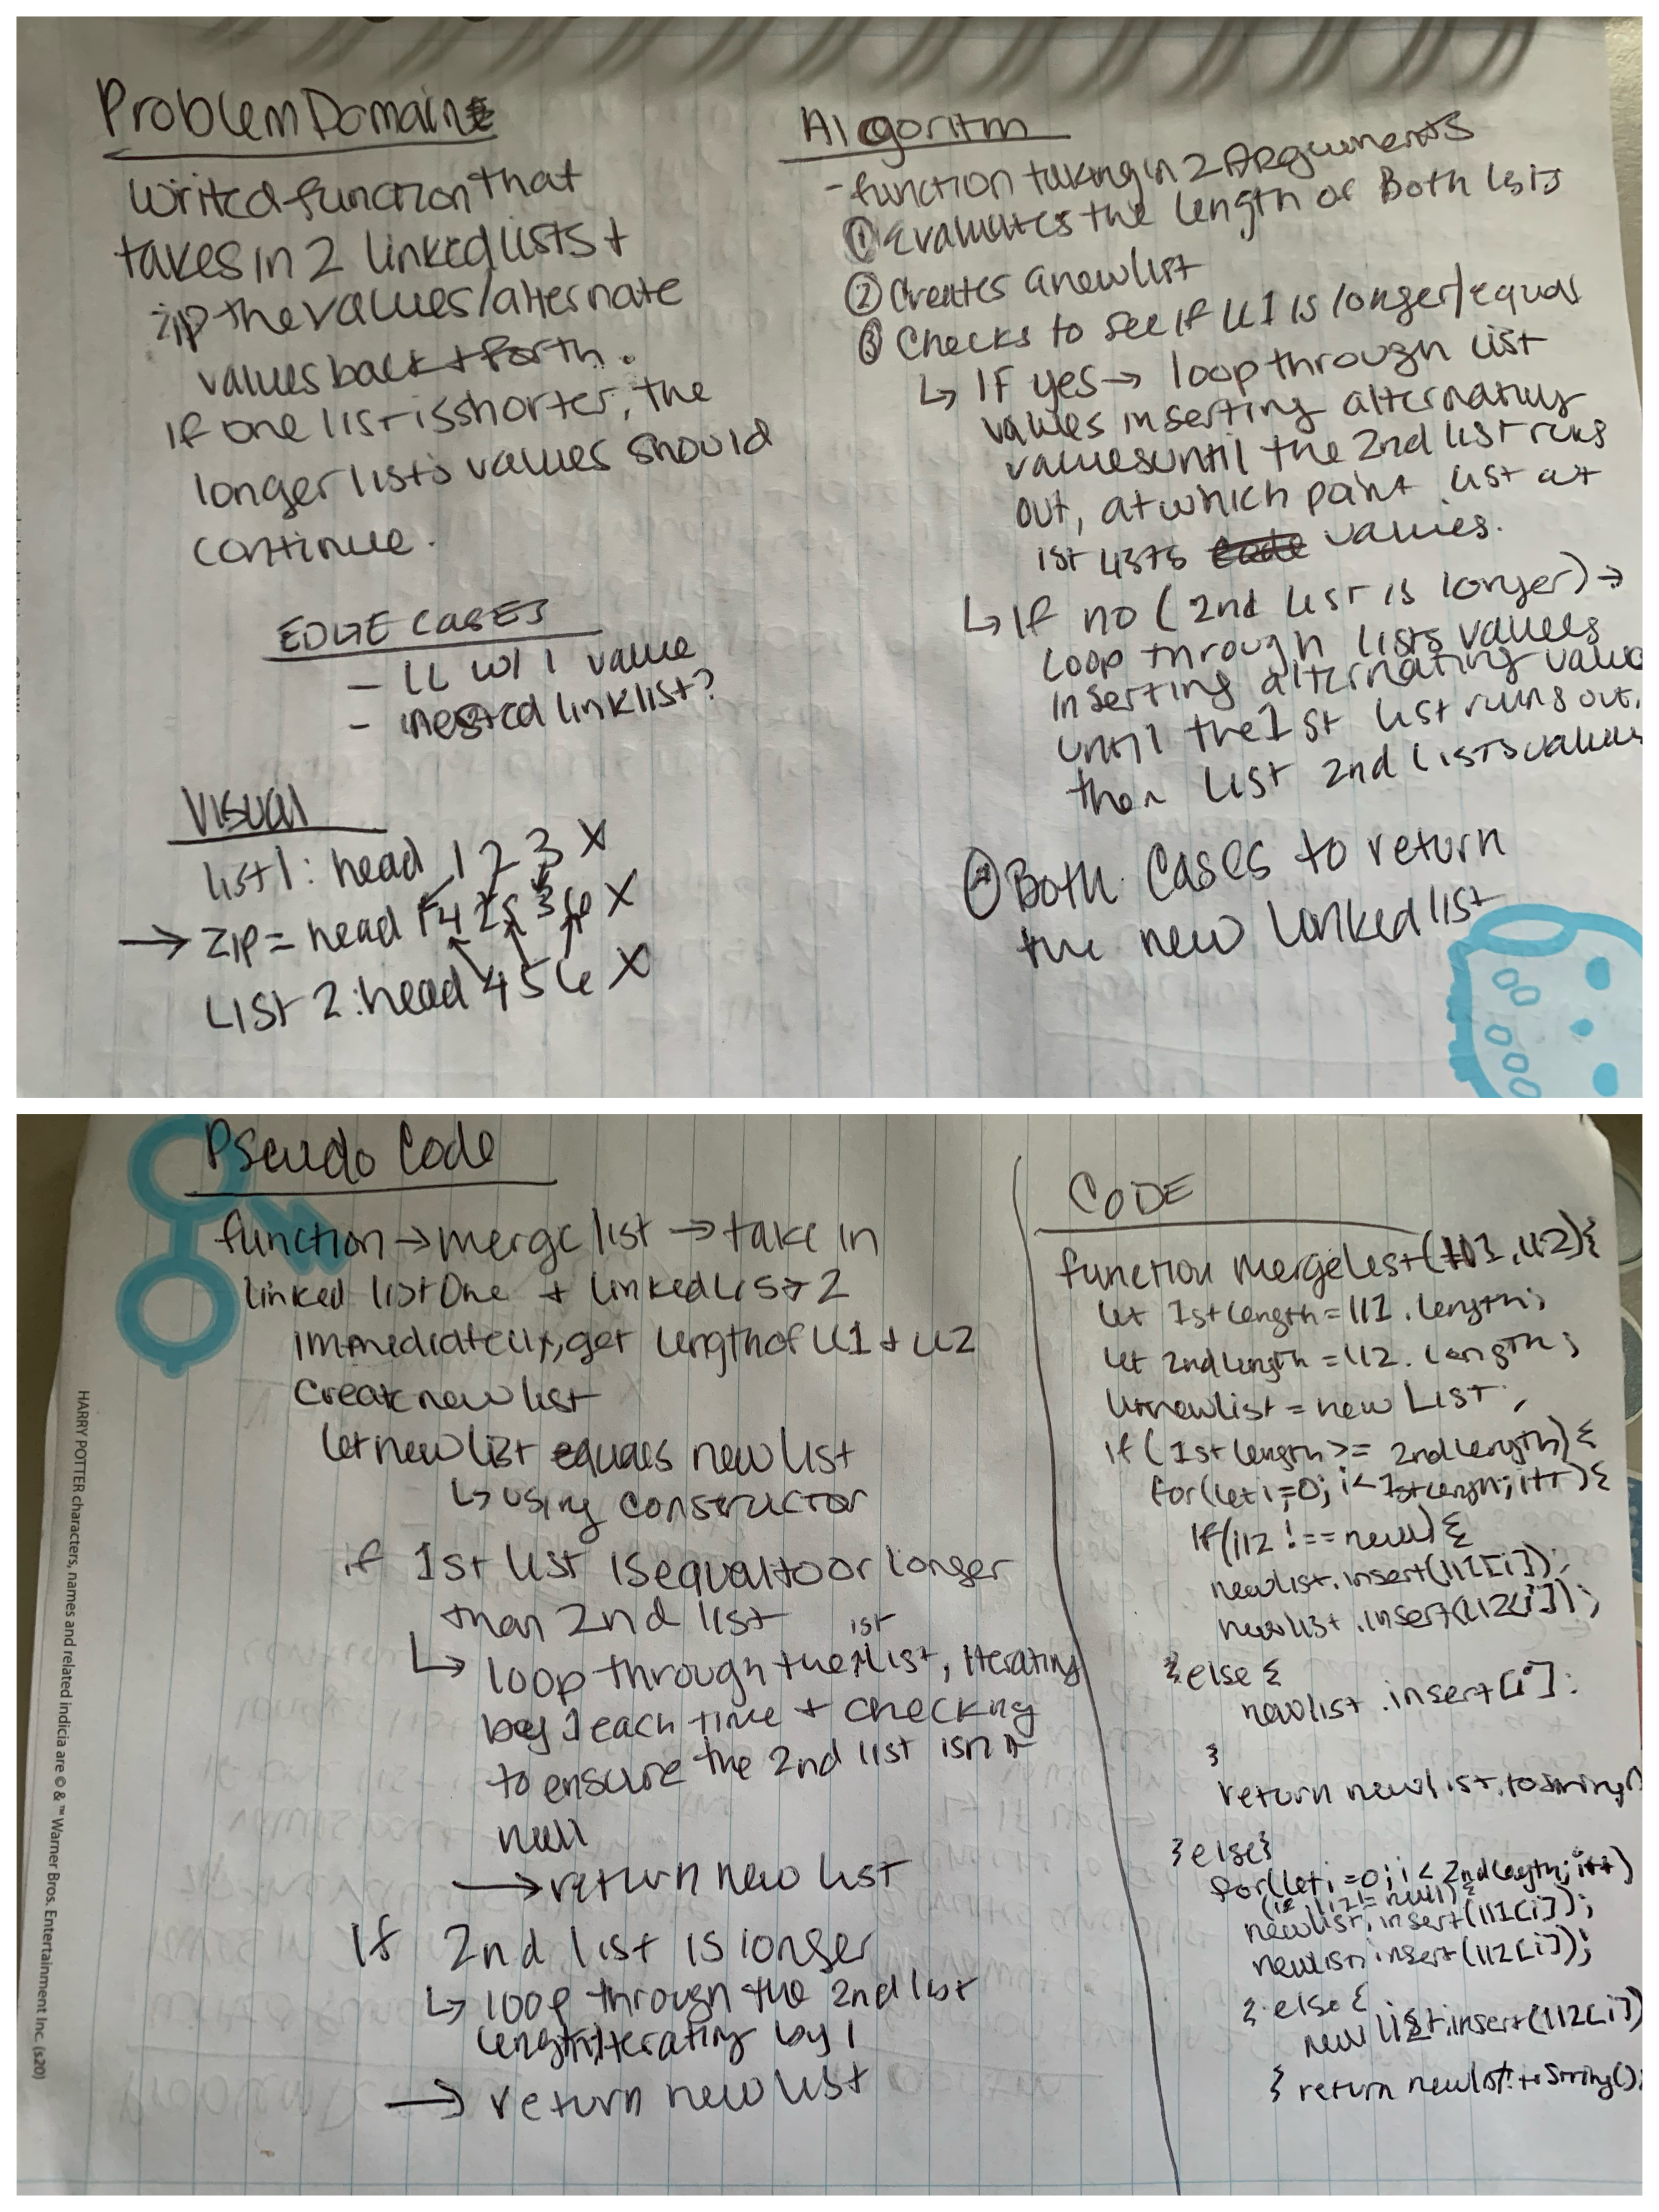 Problem Domain
Write a function that
takes in 2 linked lists +
zip the values/alternate
values back + forth.
If one list is shorter, the
longer lists values should
continue.
EDGE CASES
- LL w/ 1 value
- nested linklist?
Visual
list 1: head 1 2 3 X
→ zip = head 1 4 2 5 3 6 X
List 2: head 4 5 6 X
Algoritm
- function taking in 2 Arguments
① Evaluates the length of Both lsits
② Creates a new list
③ Checks to see if ll1 is longer/equal
↳ IF yes → loop through list
values inserting alternating
values until the 2nd list runs
out, at which point list at
1st lists values.
↳ If no (2nd list is longer) →
loop through lists values
inserting alternating value
until the 1st list runs out,
then list 2nd lists values
④ Both Cases to return
the new linked list
Pseudo Code
function → merge list → take in
linked list One + linked list 2
immediately, get length of ll1 + ll2
Create new list
let new list equals new list
↳ using constructor
if 1st list is equal to or longer
than 2nd list
↳ loop through the 1st list, iterating
by 1 each time + checking
to ensure the 2nd list isn't
null
→ return new list
If 2nd list is longer
↳ loop through the 2nd list
length iterating by 1
→ return new list
HARRY POTTER characters, names and related indicia are © & ™ Warner Bros. Entertainment Inc. (s20)
CODE
function mergeList(ll1, ll2){
let 1stLength = ll1.length;
let 2ndLength = ll2.length;
let newlist = new List;
if (1stLength >= 2ndLength) {
for(let i=0; i< 1stLength; i++){
if(ll2 !== null) {
newlist.insert(ll1[i]);
newlist.insert(ll2[i]);
} else {
newlist.insert[i];
}
return newlist.toString()
} else }
for(let i=0; i< 2ndLength; i++)
(if ll2 != null) {
newlist.insert(ll1[i]);
newlist.insert(ll2[i]);
} else {
newlist.insert(ll2[i])
} return newlist.toString();